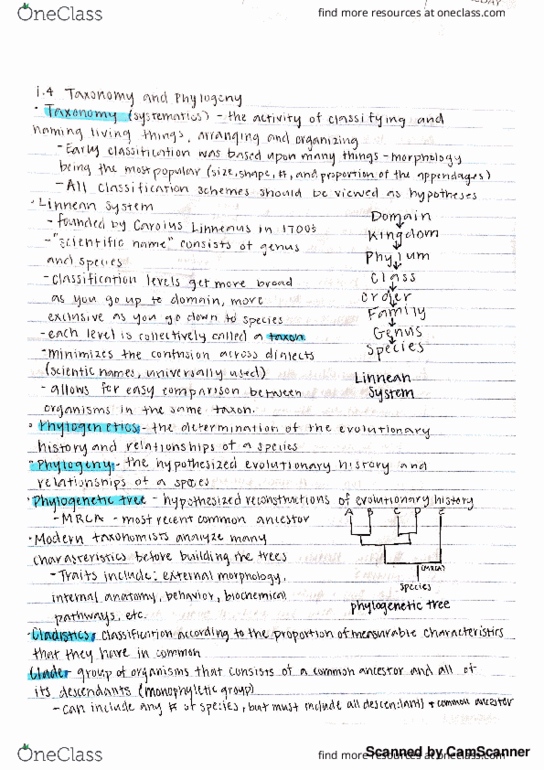 OneClass
find more resources at oneclass.com
1.4 Taxonomy and Phylogeny
· Taxonomy (systematics) - the activity of classifying and
naming living things, arranging and organizing
- Early classification was based upon many things - morphology
being the most popular (size, shape, #, and proportion of the appendages)
- All classification schemes should be viewed as hypotheses
· Linnean System
- founded by Carolus Linnenus in 1700s
- "scientific name" consists of genus
and species
- classification levels get more broad
as you go up to domain, more
exclusive as you go down to species
- each level is collectively called a taxon
- minimizes the confusion across dialects
(scientic names, universally used)
- allows for easy comparison between
organisms in the same taxon.
Domain
Kingdom
Phylum
Class
Order
Family
Genus
Species
Linnean
System
· Phylogenetics - the determination of the evolutionary
history and relationships of a species
· Phylogeny - the hypothesized evolutionary history and
relationships of a species
· Phylogenetic tree - hypothesized reconstructions of evolutionary history
- MRCA - most recent common ancestor
· Modern taxonomists analyze many
characteristics before building the trees
- Traits include: external morphology,
internal anatomy, behavior, biochemical
pathways, etc.
A B C D E
(MRCA)
species
phylogenetic tree
· Cladistics, classification according to the proportion of measurable characteristics
that they have in common
Clade, group of organisms that consists of a common ancestor and all of
its descendants (monophyletic group)
- can include any # of species, but must include all descendants + common ancestor
OneClass
find more resources at oneclass.com
Scanned by CamScanner